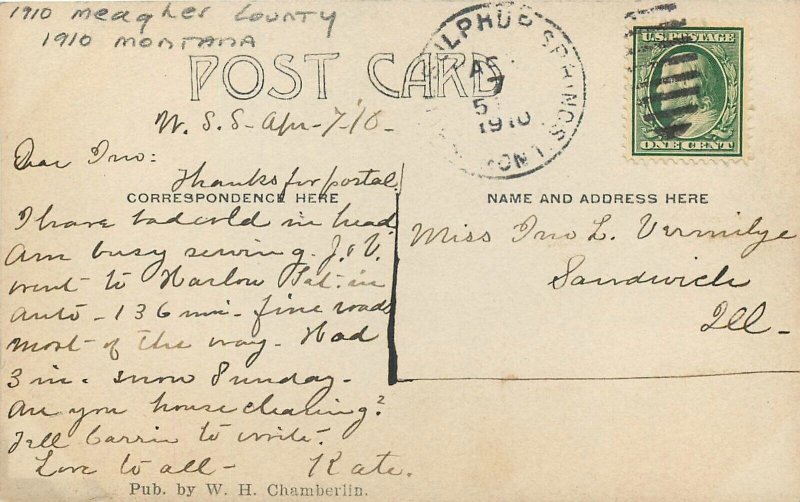 1910 Meagher County
1910 Montana
POST CARD
SULPHUR SPRINGS
7
5
1910
MONT.
U.S. POSTAGE
ONE CENT
W. S. S - Apr - 7 '10 -
Dear Ino:
Thanks for postal.
CORRESPONDENCE HERE
I have bad cold in head
Am busy sewing. J. & V.
went to Harlow Sat. in
auto - 136 mi - fine roads
most of the way. Had
3 in. snow Sunday -
Are you house cleaning?
Tell Carrie to write.
Love to all - Kate.
NAME AND ADDRESS HERE
Miss Ino L. Vermilye
Sandwich
Ill -
Pub. by W. H. Chamberlin.